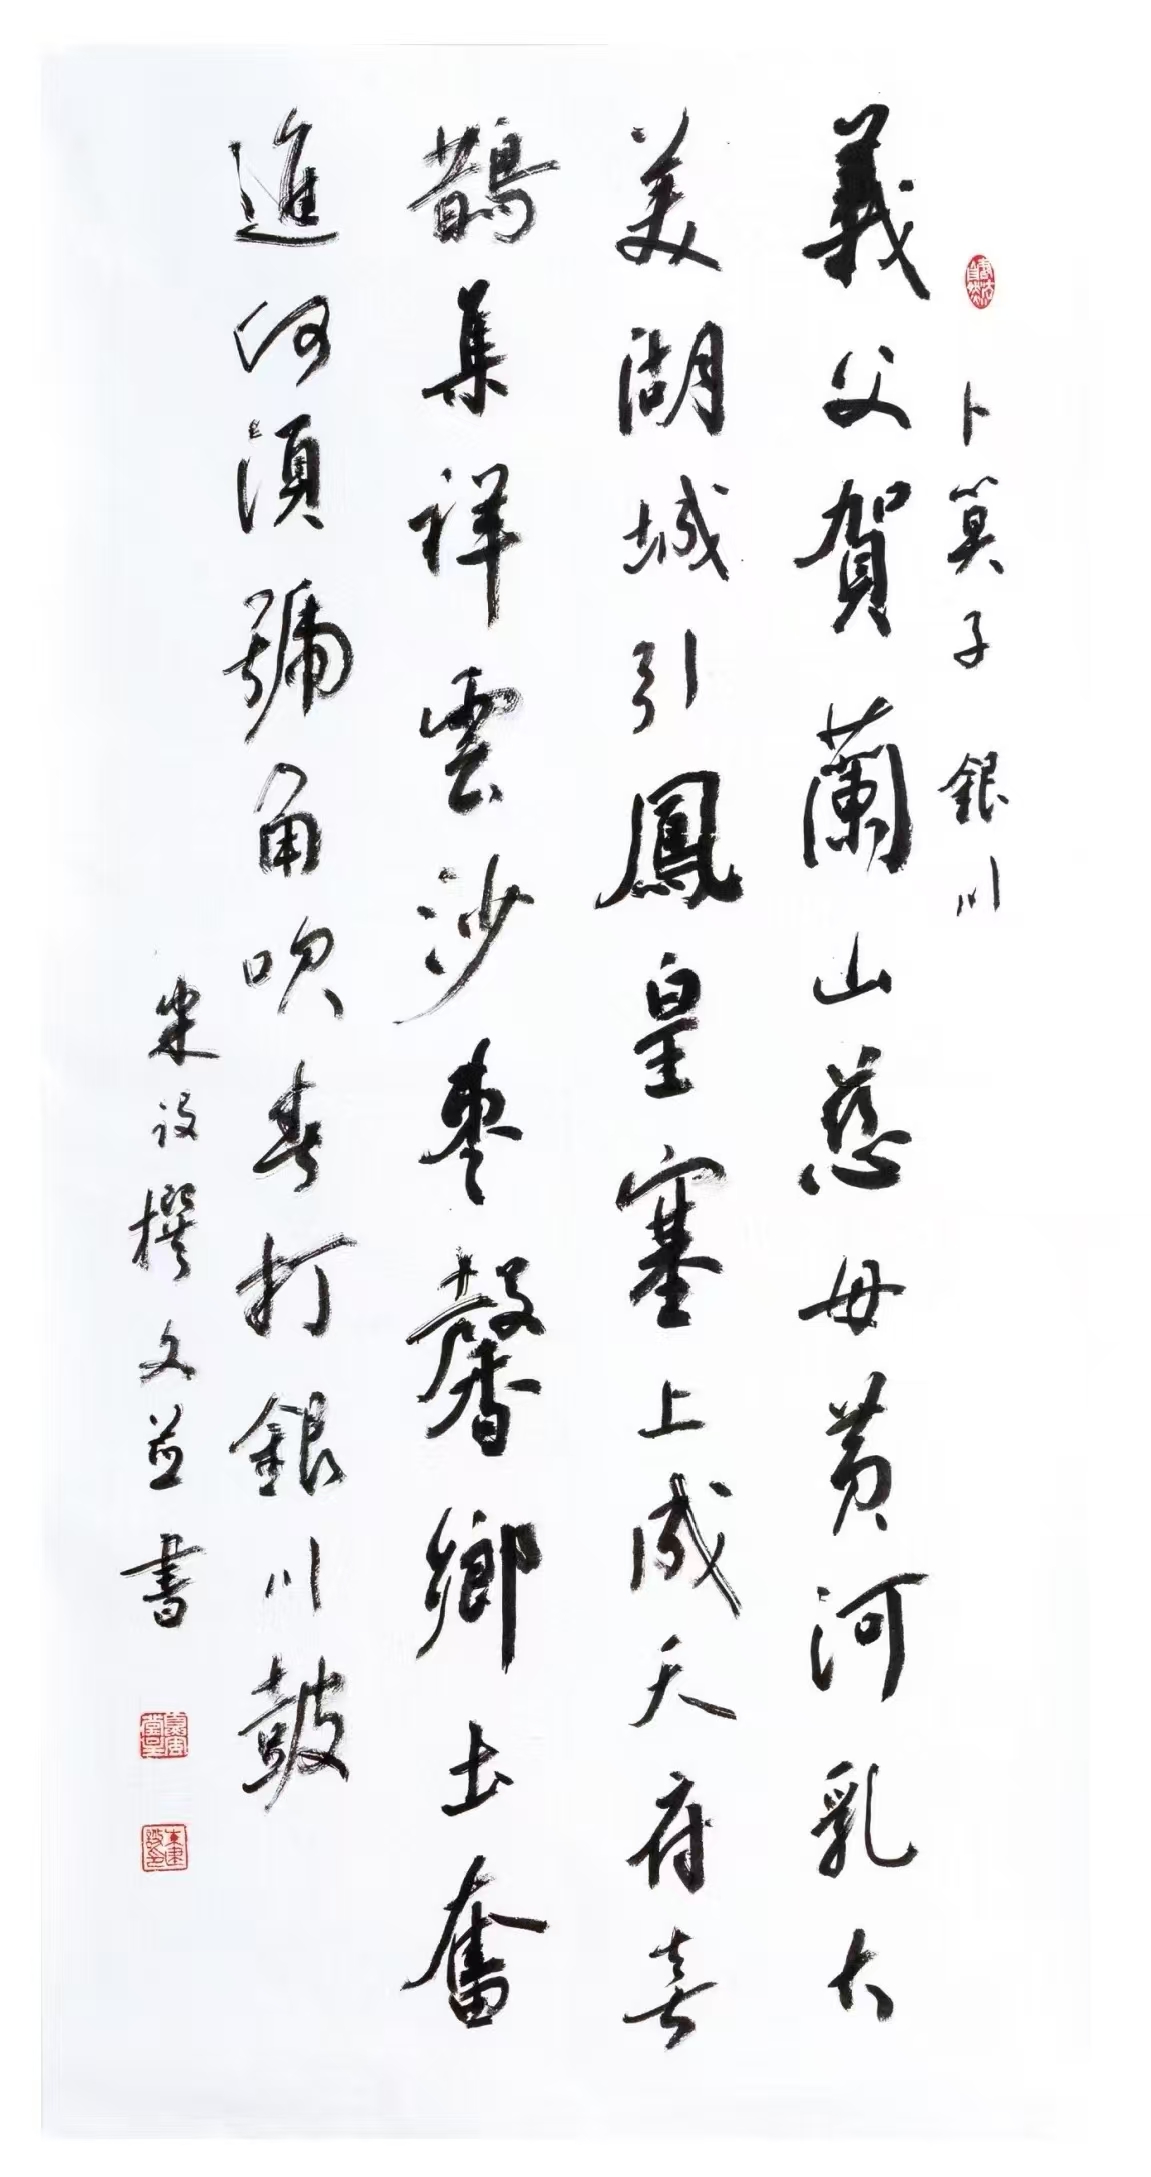 書法自然
卜算子 銀川
義父賀蘭山慈母黄河乳大
美湖城引鳳皇塞上成天府喜
鵲集祥雲沙枣馨鄉土奮
進何須號角吹春打銀川鼓
设撰文並書